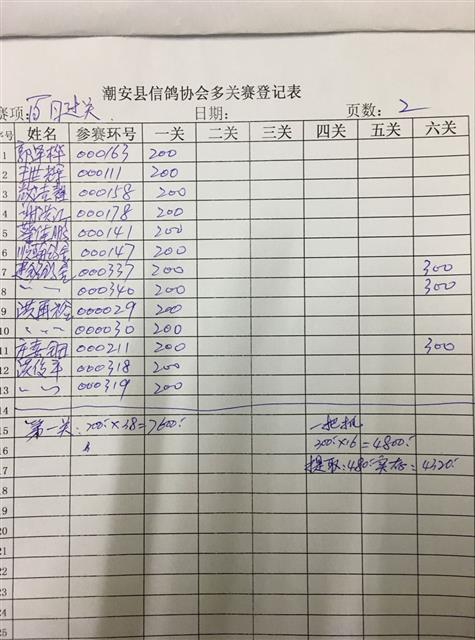 潮安县信鸽协会多关赛登记表
赛项:百日过关 日期: 页数:2
序号 姓名 参赛环号 一关 二关 三关 四关 五关 六关
1 000163 200
2 000111 200
3 000158 200
4 000178 200
5 000141 200
6 000147 200
7 000337 200 300
8 〃 〃 000340 200 300
9 000029 200
10 〃 〃 000030 200
11 000211 200 300
12 000318 200
13 〃 〃 000319 200
14
15 第一关:200×38=7600 一把抓
16 300×16=4800
17 提取:480 实存:4320
18
19
20
21
22
23
24
25